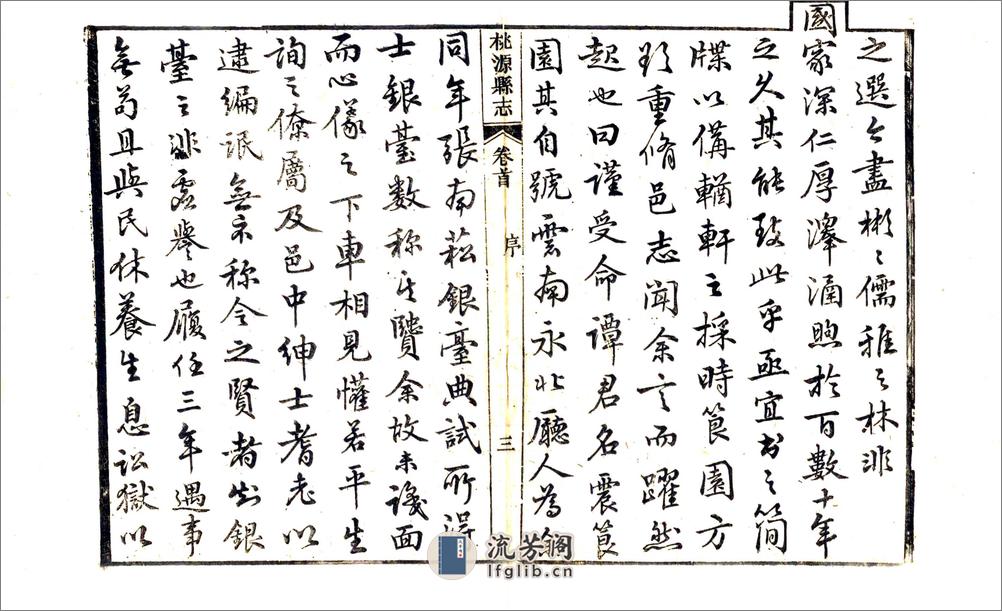 之選今盡彬〻儒雅之林非
國家深仁厚澤涵煦於百數十年
之久其能致此乎亟宜書之簡
牒以備輶軒之採時筤園方
欲重脩邑志聞余言而躍然
起也曰謹受命譚君名震筤
園其自號雲南永北廳人為余
桃源縣志 卷首 序 三
同年張南菘銀臺典試所得
士銀臺數称其賢余故未識面
而心儀之下車相見懽若平生
詢之僚屬及邑中紳士耆老以
逮編氓無不称令之賢者知銀
臺之非虛譽也履任三年遇事
無苟且與民休養生息訟獄以
流芳阁
lfglib.cn